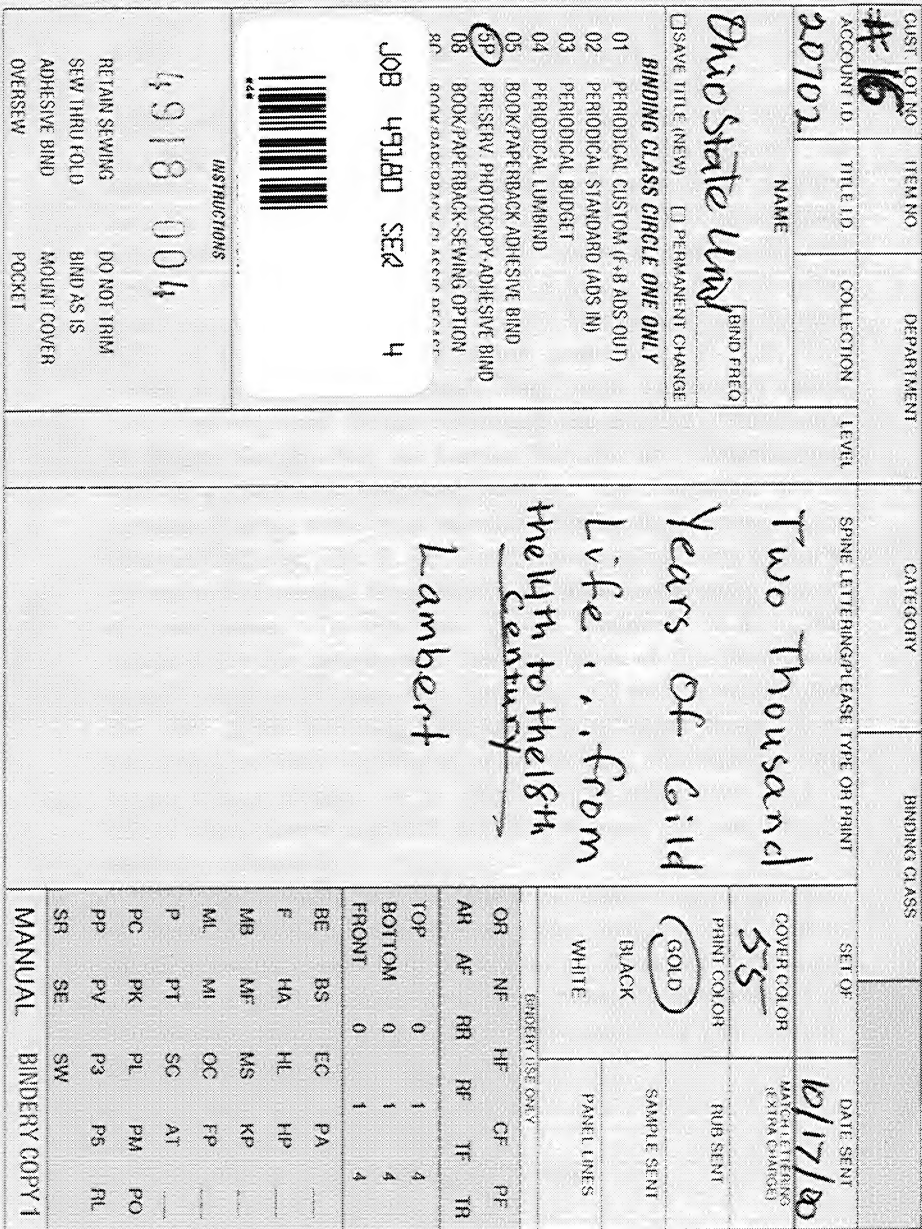 CUST. LOT. NO. TIE NO DEPARTMENT CATEGORY BINDING CLASS
#16
ACCOUNT I.D. TITLE ID COLLECTION LEVEL SPINE LETTERING/PLEASE TYPE OR PRINT SET OF DATE SENT
20702 10/17/00
NAME BIND FREQ.
Ohio State Univ
☐SAVE TITLE (NEW) ☐ PERMANENT CHANGE
BINDING CLASS CIRCLE ONE ONLY
01 PERIODICAL CUSTOM (F+B ADS OUT)
02 PERIODICAL STANDARD (ADS IN)
03 PERIODICAL BUDGET
04 PERIODICAL LUMBIND
05 BOOK/PAPERBACK ADHESIVE BIND
5P PRESERV. PHOTOCOPY-ADHESIVE BIND
08 BOOK/PAPERBACK-SEWING OPTION
JOB 49180 SEQ 4
INSTRUCTIONS
49180004
RETAIN SEWING DO NOT TRIM
SEW THRU FOLD BIND AS IS
ADHESIVE BIND MOUNT COVER
OVERSEW POCKET
Two Thousand
Years Of Gild
Life.. from
the 14th to the 18th
Century
Lambert
COVER COLOR
55
PRINT COLOR
GOLD
BLACK
WHITE
MATCH LETTERING
(EXTRA CHARGE)
RUB SENT
SAMPLE SENT
PANEL LINES
BINDERY USE ONLY
OR NF HF CF PF
AR AF RR RF TF TR
TOP 0 1 4
BOTTOM 0 1 4
FRONT 0 1 4
BE BS EC PA
F HA HL HP
MB MF MS KP
ML MI OC FP
P PT SC AT
PC PK PL PM PO
PP PV P3 P5 RL
SR SE SW
MANUAL BINDERY COPY 1